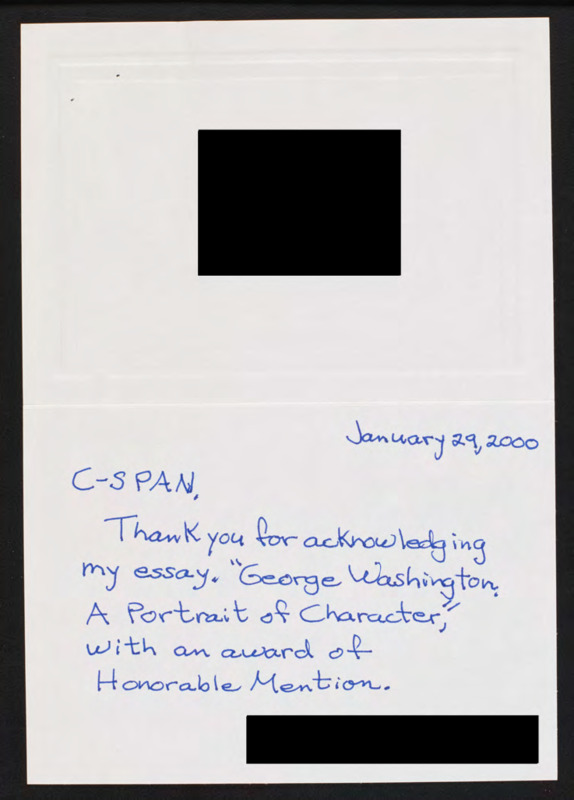 January 29, 2000
C-SPAN,
Thank you for acknowledging
my essay. "George Washington:
A Portrait of Character,"
with an award of
Honorable Mention.